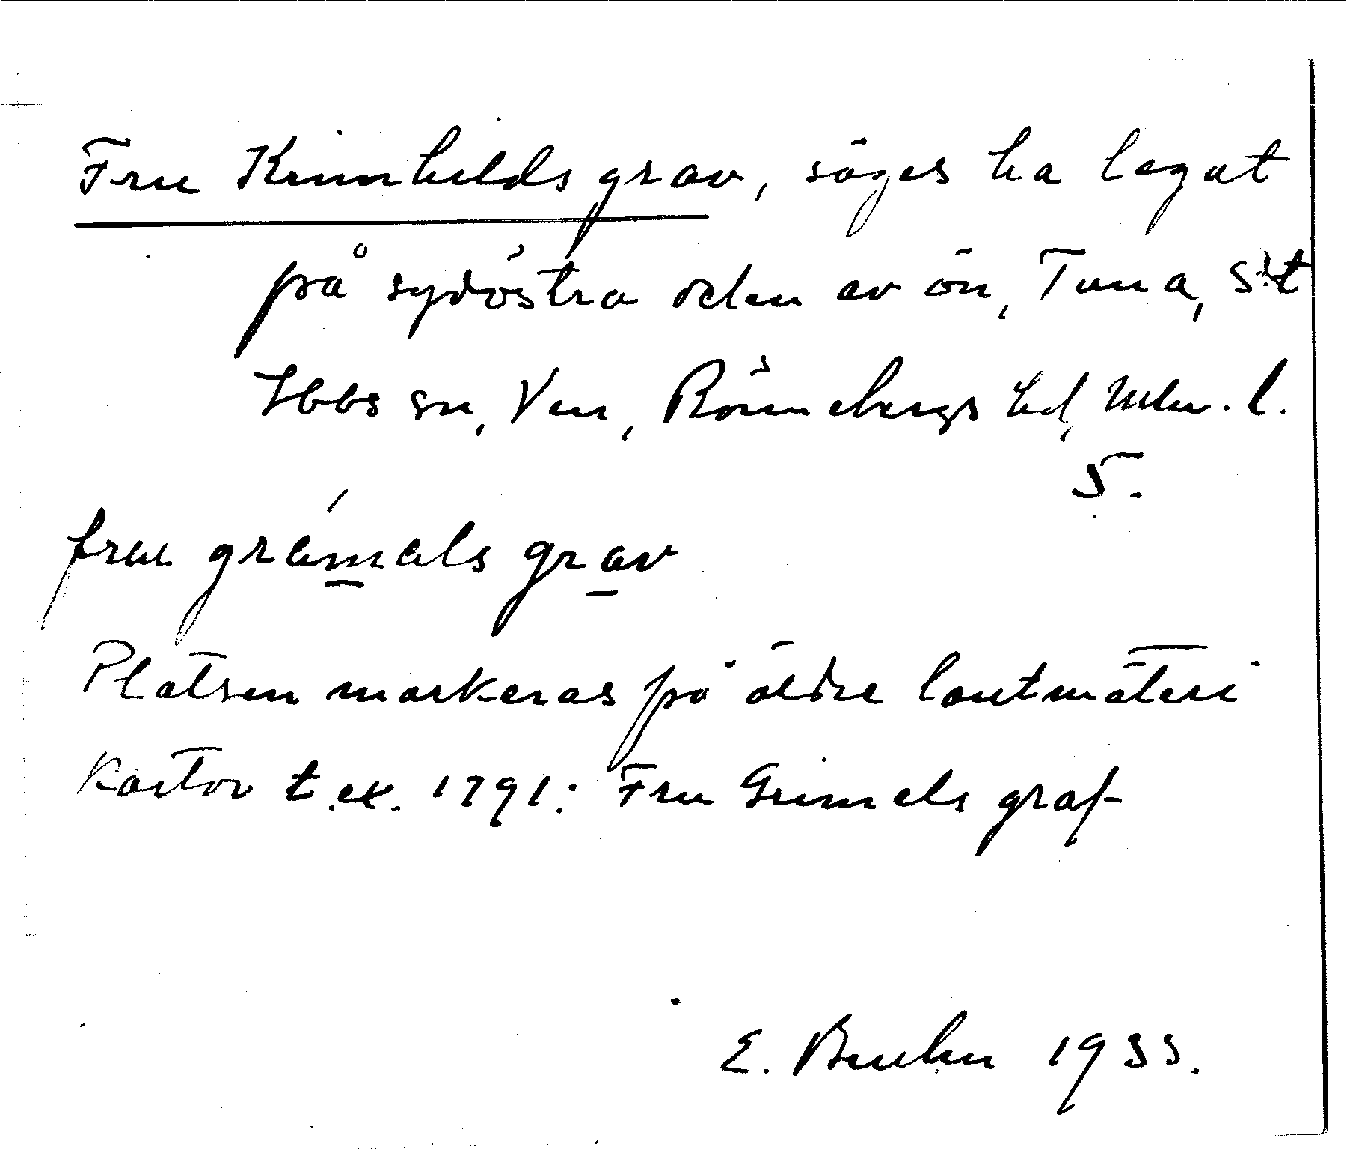 Fru Krimhilds grav, säges ha legat
på sydöstra delen av ön, Tuna, S:t
Ibbs sn, Ven, Rönnebergs hd, Mlm. l.
5.
frau grámals grav
Platsen markeras på äldre lantmäteri
kartor t.ex. 1791: Fru Grimels graf
E. Bruhn 1933.